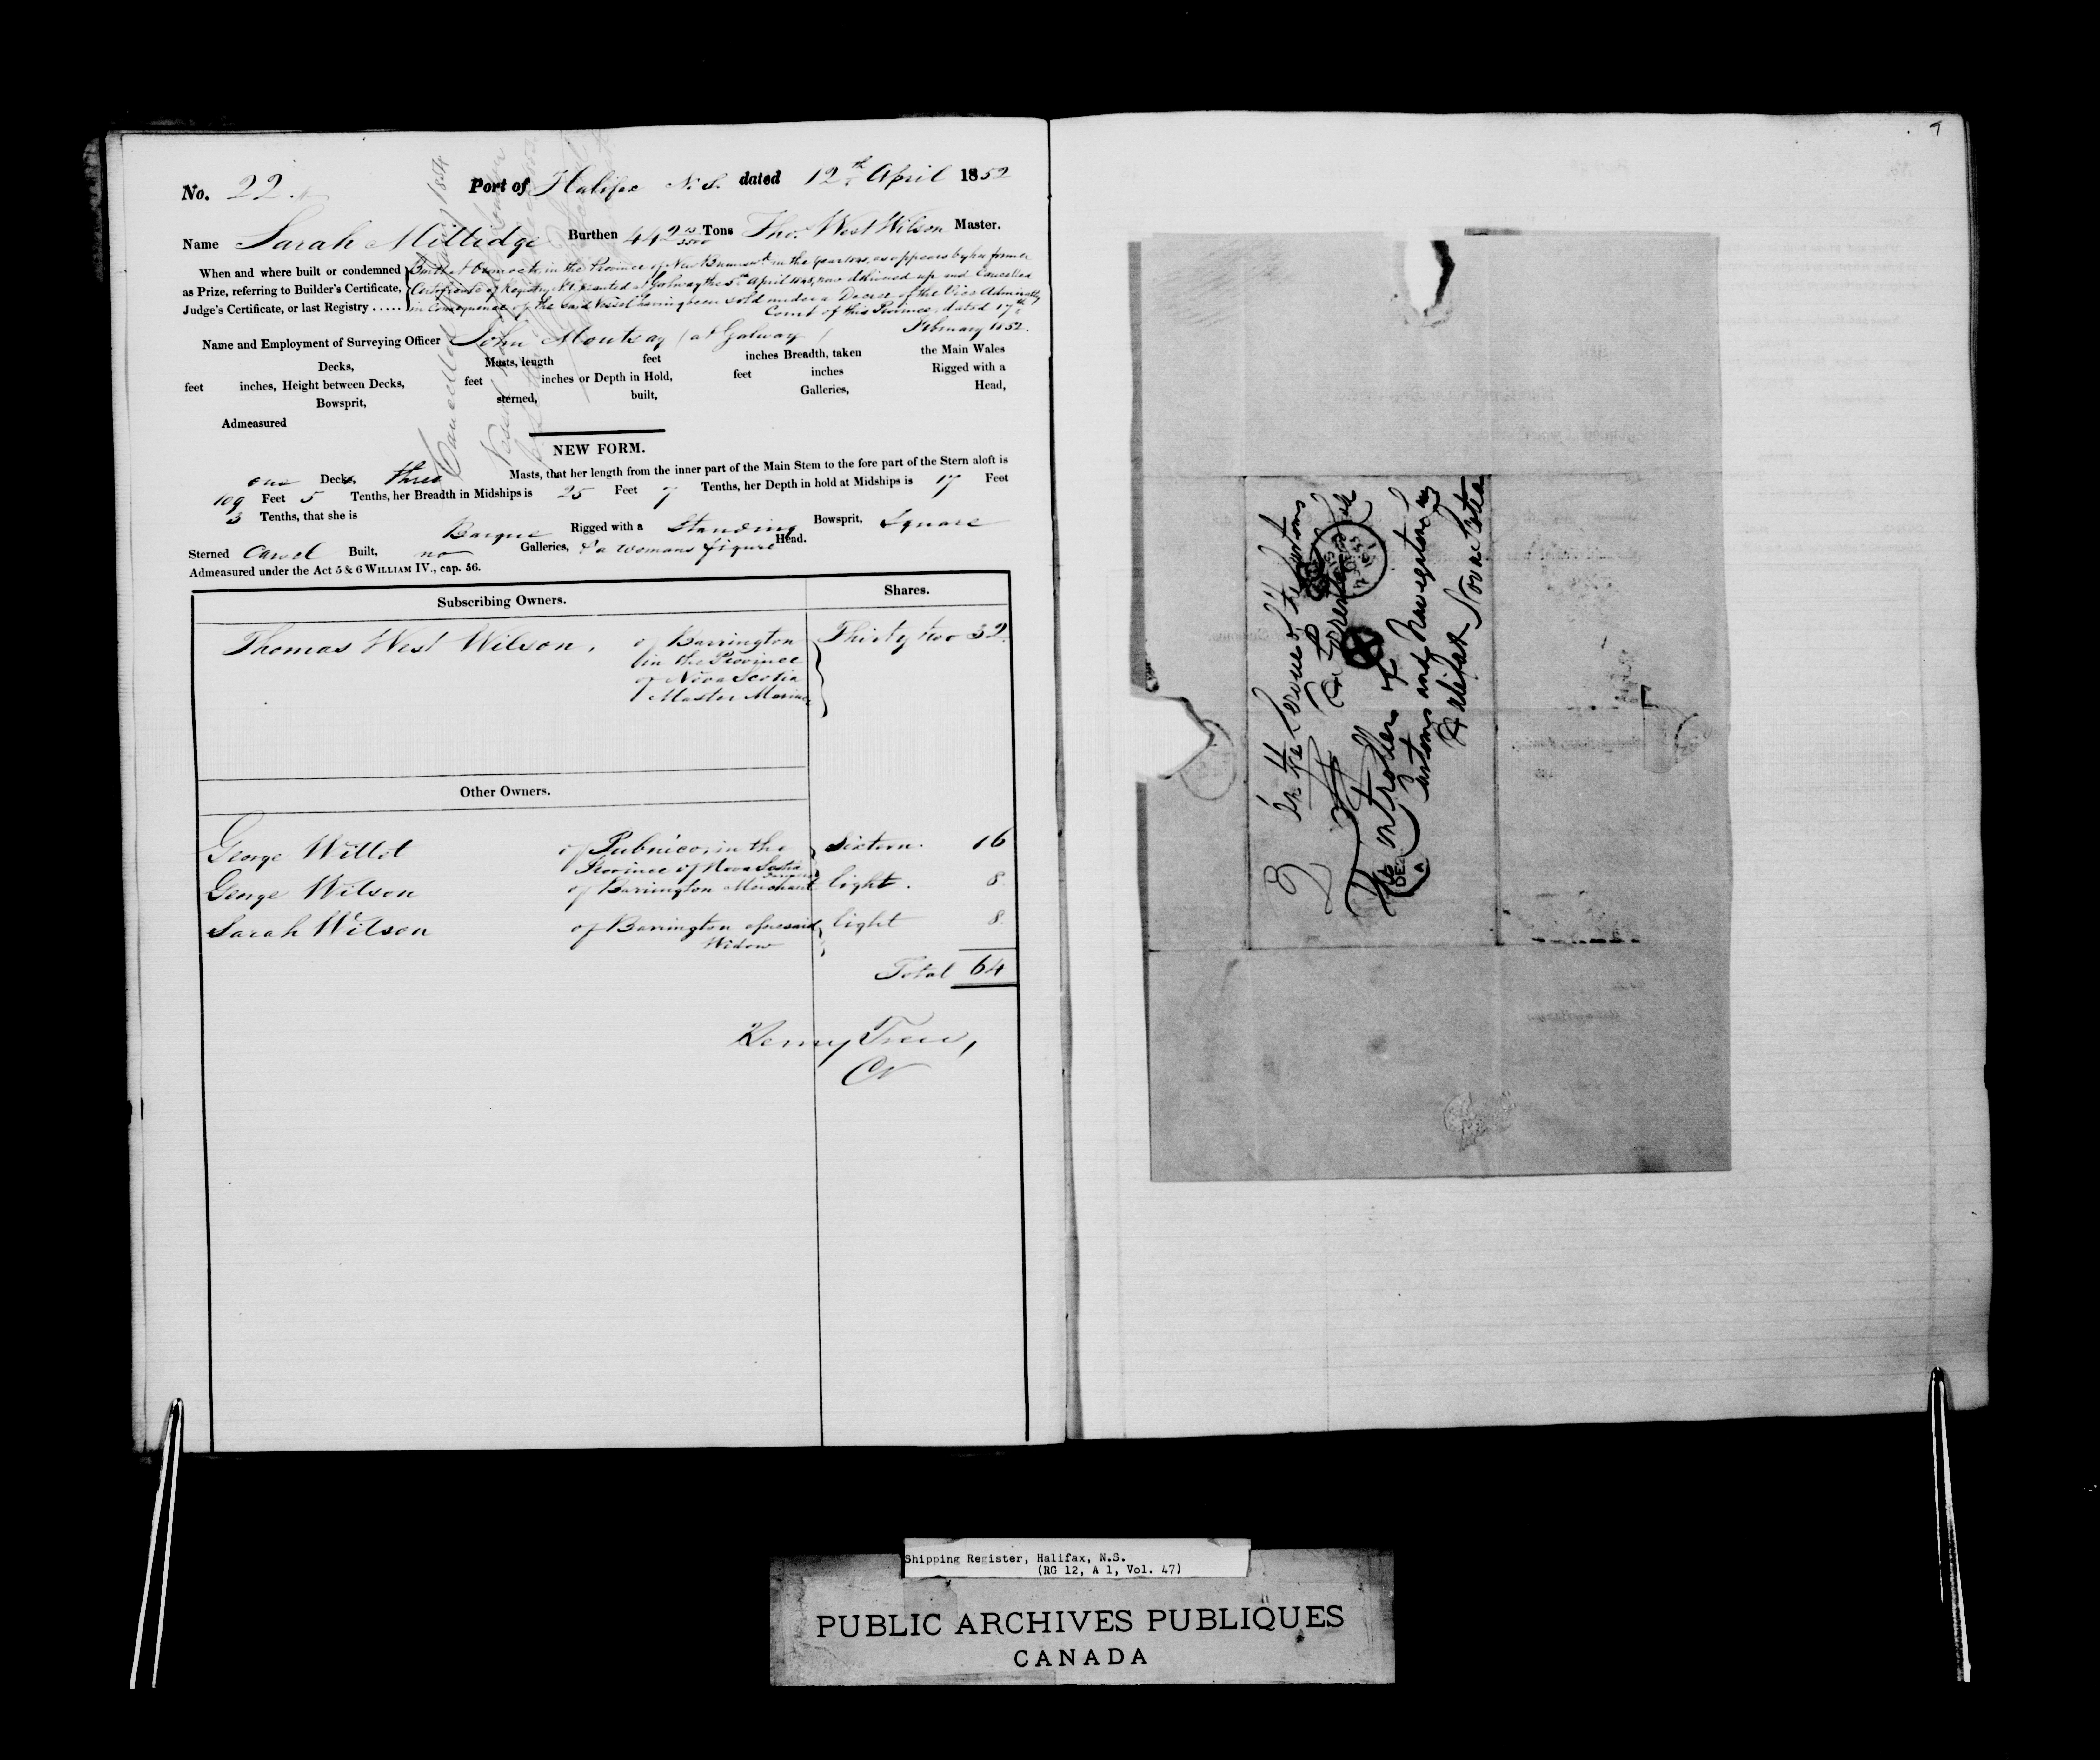 No. 22. Port of Halifax N.S. dated 12th April 1852
Name Sarah Millidge Burthen 442 Tons Tho. West Wilson Master.
When and where built or condemned Built at Oromocto, in the Province of New Brunswick in the year, as appears by her former
as Prize, referring to Builder's Certificate, Certificate of Registry No. 1, granted at Galway the 5th April 1848, now delivered up and Cancelled
Judge's Certificate, or last Registry ..... in Consequence of the said Vessel having been sold under a Decree of the Vice Admiralty
Court of this Province, dated 17th
February 1852.
Name and Employment of Surveying Officer John (at Galway)
Decks, Masts, length feet inches Breadth, taken the Main Wales
feet inches, Height between Decks, feet inches or Depth in Hold, feet inches Rigged with a
Bowsprit, sterned, built, Galleries, Head,
Admeasured
Cancelled 1854
Vessel
NEW FORM.
one Decks, three Masts, that her length from the inner part of the Main Stem to the fore part of the Stern aloft is
109 Feet 5 Tenths, her Breadth in Midships is 25 Feet 7 Tenths, her Depth in hold at Midships is 17 Feet
3 Tenths, that she is Barque Rigged with a Standing Bowsprit, Square
Sterned Carvel Built, no Galleries, & a womans figure Head.
Admeasured under the Act 5 & 6 WILLIAM IV., cap. 56.
Subscribing Owners. Shares.
Thomas West Wilson, of Barrington Thirty two 32
in the Province
of Nova Scotia
Master Mariner
Other Owners.
George Willet of Pubnico, in the Sixteen. 16
Province of Nova Scotia
George Wilson of Barrington Merchant Eight. 8
Sarah Wilson of Barrington aforesaid Eight 8
Widow
Total 64
Henry Trew,
Cr
On the Service of the Customs
Controller of
Customs and Navigation Laws
Halifax Nova Scotia
Shipping Register, Halifax, N.S.
(RG 12, A 1, Vol. 47)
PUBLIC ARCHIVES PUBLIQUES
CANADA